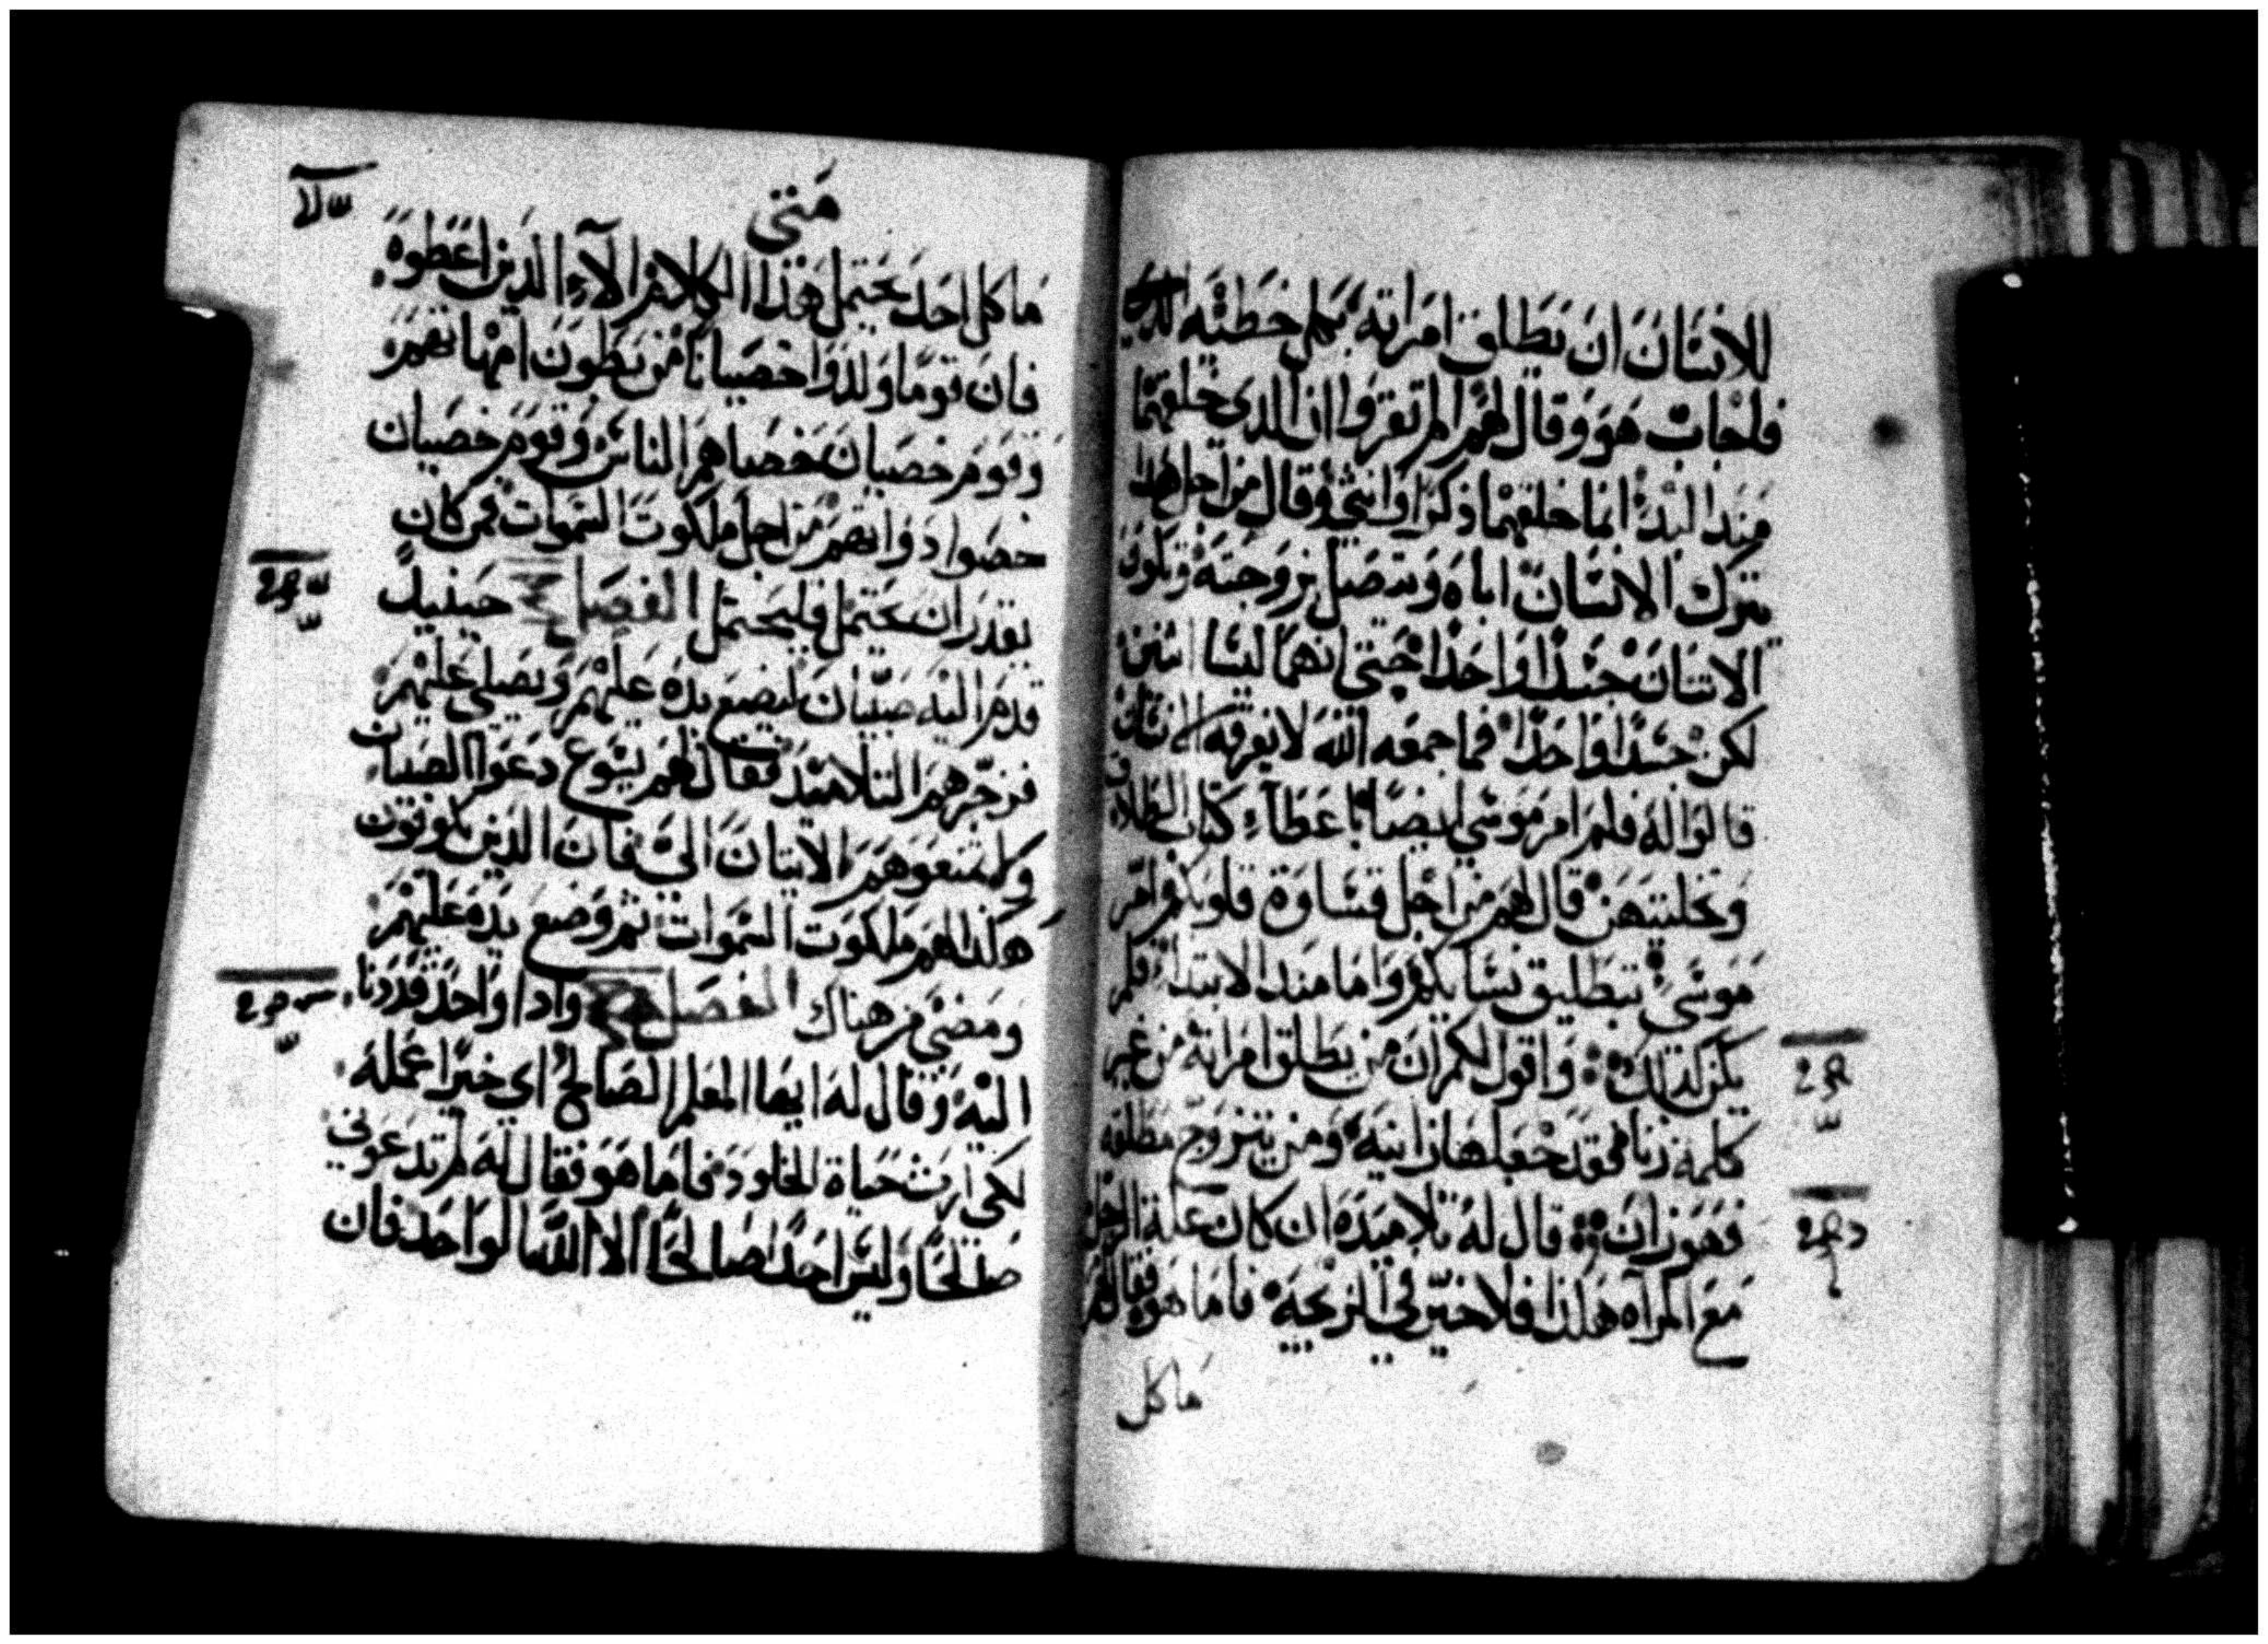 للانسان ان يطلق امراته بكل خطيه
فاجاب هو وقال لهم الم تقروا ان الدى خلقهما
مند البدء انما خلقهما ذكرا وانثي وقال من اجل هدا
يترك الانسان اباه ويتصل بزوجته ويكون
الاتنان جسدا واحدا حتي انهما ليسا اثنين
لكن جسدا واحدا فما جمعه الله لا يفرقه الانسان
قالوا له فلم امر موسي ايضا باعطاء كتاب الطلاق
وتخليتهن قال لهم من اجل قساوة قلوبكم امر
موسي بتطليق نسايكم واما مند الابتداء فلم
يكن كدلك واقول لكم ان من يطلق امراته من غير
كلمة زنا فقد جعلها زانية ومن يتزوج مطلقه
فهو زان قال له تلاميده ان كان علة الرجل
مع المرآه هكدا فلا خير في الزيجية فاما هو فقال لهم
ما كل
متى
ما كل احد يحتمل هدا الكلام الآ الدين اعطوه
فان قوما ولدوا خصيانا من بطون امهاتهم
وقوم خصيان خصاهم الناس وقوم خصيان
خصوا دواتهم من اجل ملكوت السموات فمن كان
يقدر ان يحتمل فليحتمل الفصل حينيد
قدم اليه صبيان ليضع يده عليهم ويصلي عليهم
فزجرهم التلاميد فقال لهم يسوع دعوا الصبيان
ولا تمنعوهم الاتيان الي فان الدين يكونون
هكدا لهم ملكوت السموات ثم وضع يده عليهم
ومضي من هناك الفصل وادا واحد قد دنا
اليه وقال له ايها المعلم الصالح اي خير اعمله
لكي ارث حياة الخلود فاما هو فقال له لم تدعوني
صالحا وليس احد صالحا الا الله الواحد فان